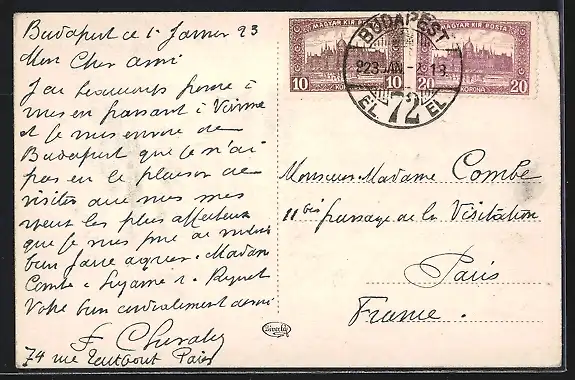 Budapest ce 1 Janvier 23
Mon Cher ami
J'ai beaucoup pensé à
vous en passant à Vienne
et je vous envoie de
Budapest que je n'ai
pas eu le plaisir de
visiter avec vous mes
vœux les plus affectueux
que je vous prie de
bien faire agréer. Madame
Combe
Votre bien cordialement
F Chevaley
74 rue Taitbout Paris
MAGYAR KIR. POSTA
MAGYAR KIR. POSTA
10
KORONA
10
20
KORONA
20
BUDAPEST
EL 72 EL
Monsieur Madame Combe
11 bis passage de la Visitation
Paris
France.